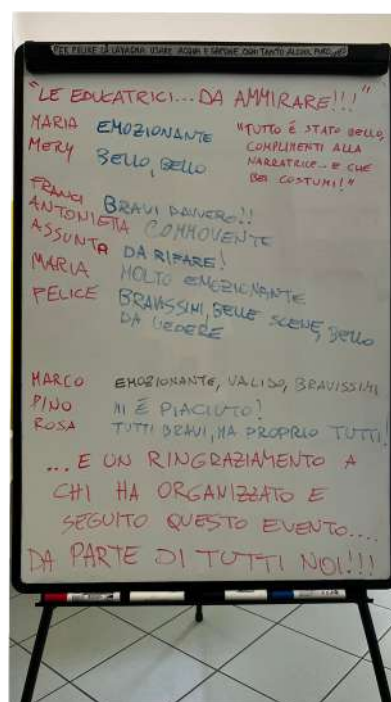 PER PULIRE LA LAVAGNA USARE ACQUA E SAPONE OGNI TANTO ALCOOL PURO
"LE EDUCATRICI... DA AMMIRARE!!!"
MARIA EMOZIONANTE
MERY BELLO, BELLO
"TUTTO È STATO BELLO,
COMPLIMENTI ALLA
NARRATRICE... E CHE
BEI COSTUMI!"
FRANCI BRAVI DAVVERO!!
ANTONIETTA COMMOVENTE
ASSUNTA DA RIFARE!
MARIA MOLTO EMOZIONANTE
FELICE BRAVISSIMI, BELLE SCENE, BELLO
DA VEDERE
MARCO EMOZIONANTE, VALIDO, BRAVISSIMI
PINO MI È PIACIUTO!
ROSA TUTTI BRAVI, MA PROPRIO TUTTI!
... E UN RINGRAZIAMENTO A
CHI HA ORGANIZZATO E
SEGUITO QUESTO EVENTO....
DA PARTE DI TUTTI NOI!!!